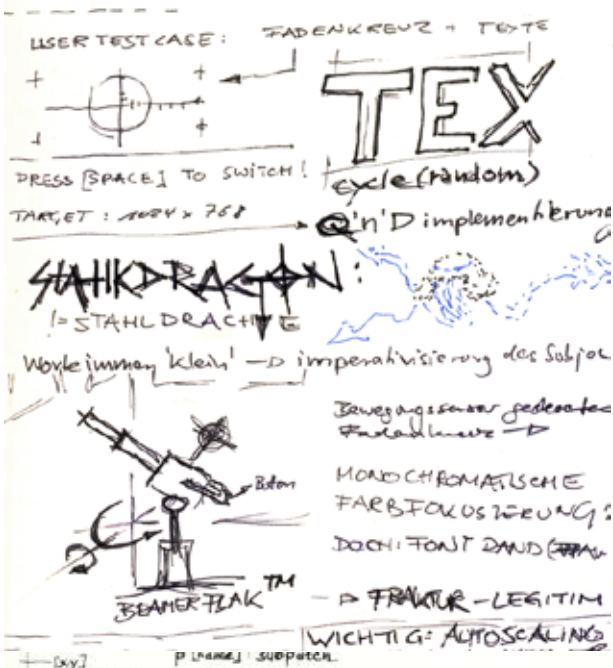 USER TESTCASE: FADENKREUZ + TEXTE
TEX
PRESS [SPACE] TO SWITCH!
cycle(random)
TARGET: 1024 x 768
Q'n'D implementierung
STAHLDRAGON:
!= STAHLDRACHE
Worte immer 'klein' → imperativisierung des Subje
Bewegungssensor gesteuertes
Fadenkreuz →
Button
MONOCHROMATISCHE
FARBFOKUSIERUNG?
DOCH: FONT
BEAMERFLAK™
→ FRAKTUR-LEGITIM
WICHTIG: AUTOSCALING
[x,y] p [name] subpatch